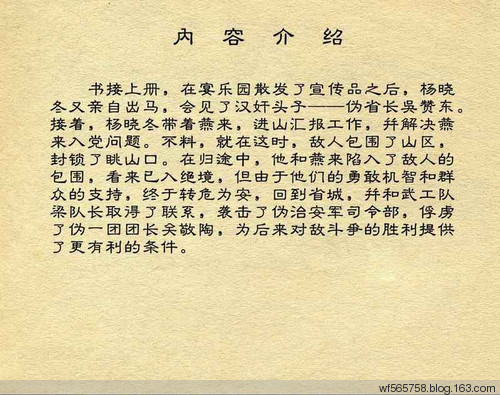 內容介绍
书接上册，在宴乐园散发了宣传品之后，杨晓
冬又亲自出马，会见了汉奸头子——伪省长吳赞东。
接着，杨晓冬带着燕来，进山汇报工作，幷解决燕
来入党问题。不料，就在这时，敌人包围了山区，
封锁了眺山口。在归途中，他和燕来陷入了敌人的
包围，看来已入绝境，但由于他们的勇敢机智和群
众的支持，终于转危为安，回到省城，幷和武工队
梁队长取得了联系，袭击了伪治安军司令部，俘虏
了伪一团团长关敬陶，为后来对敌斗爭的胜利提供
了更有利的条件。
wf565758.blog.163.com